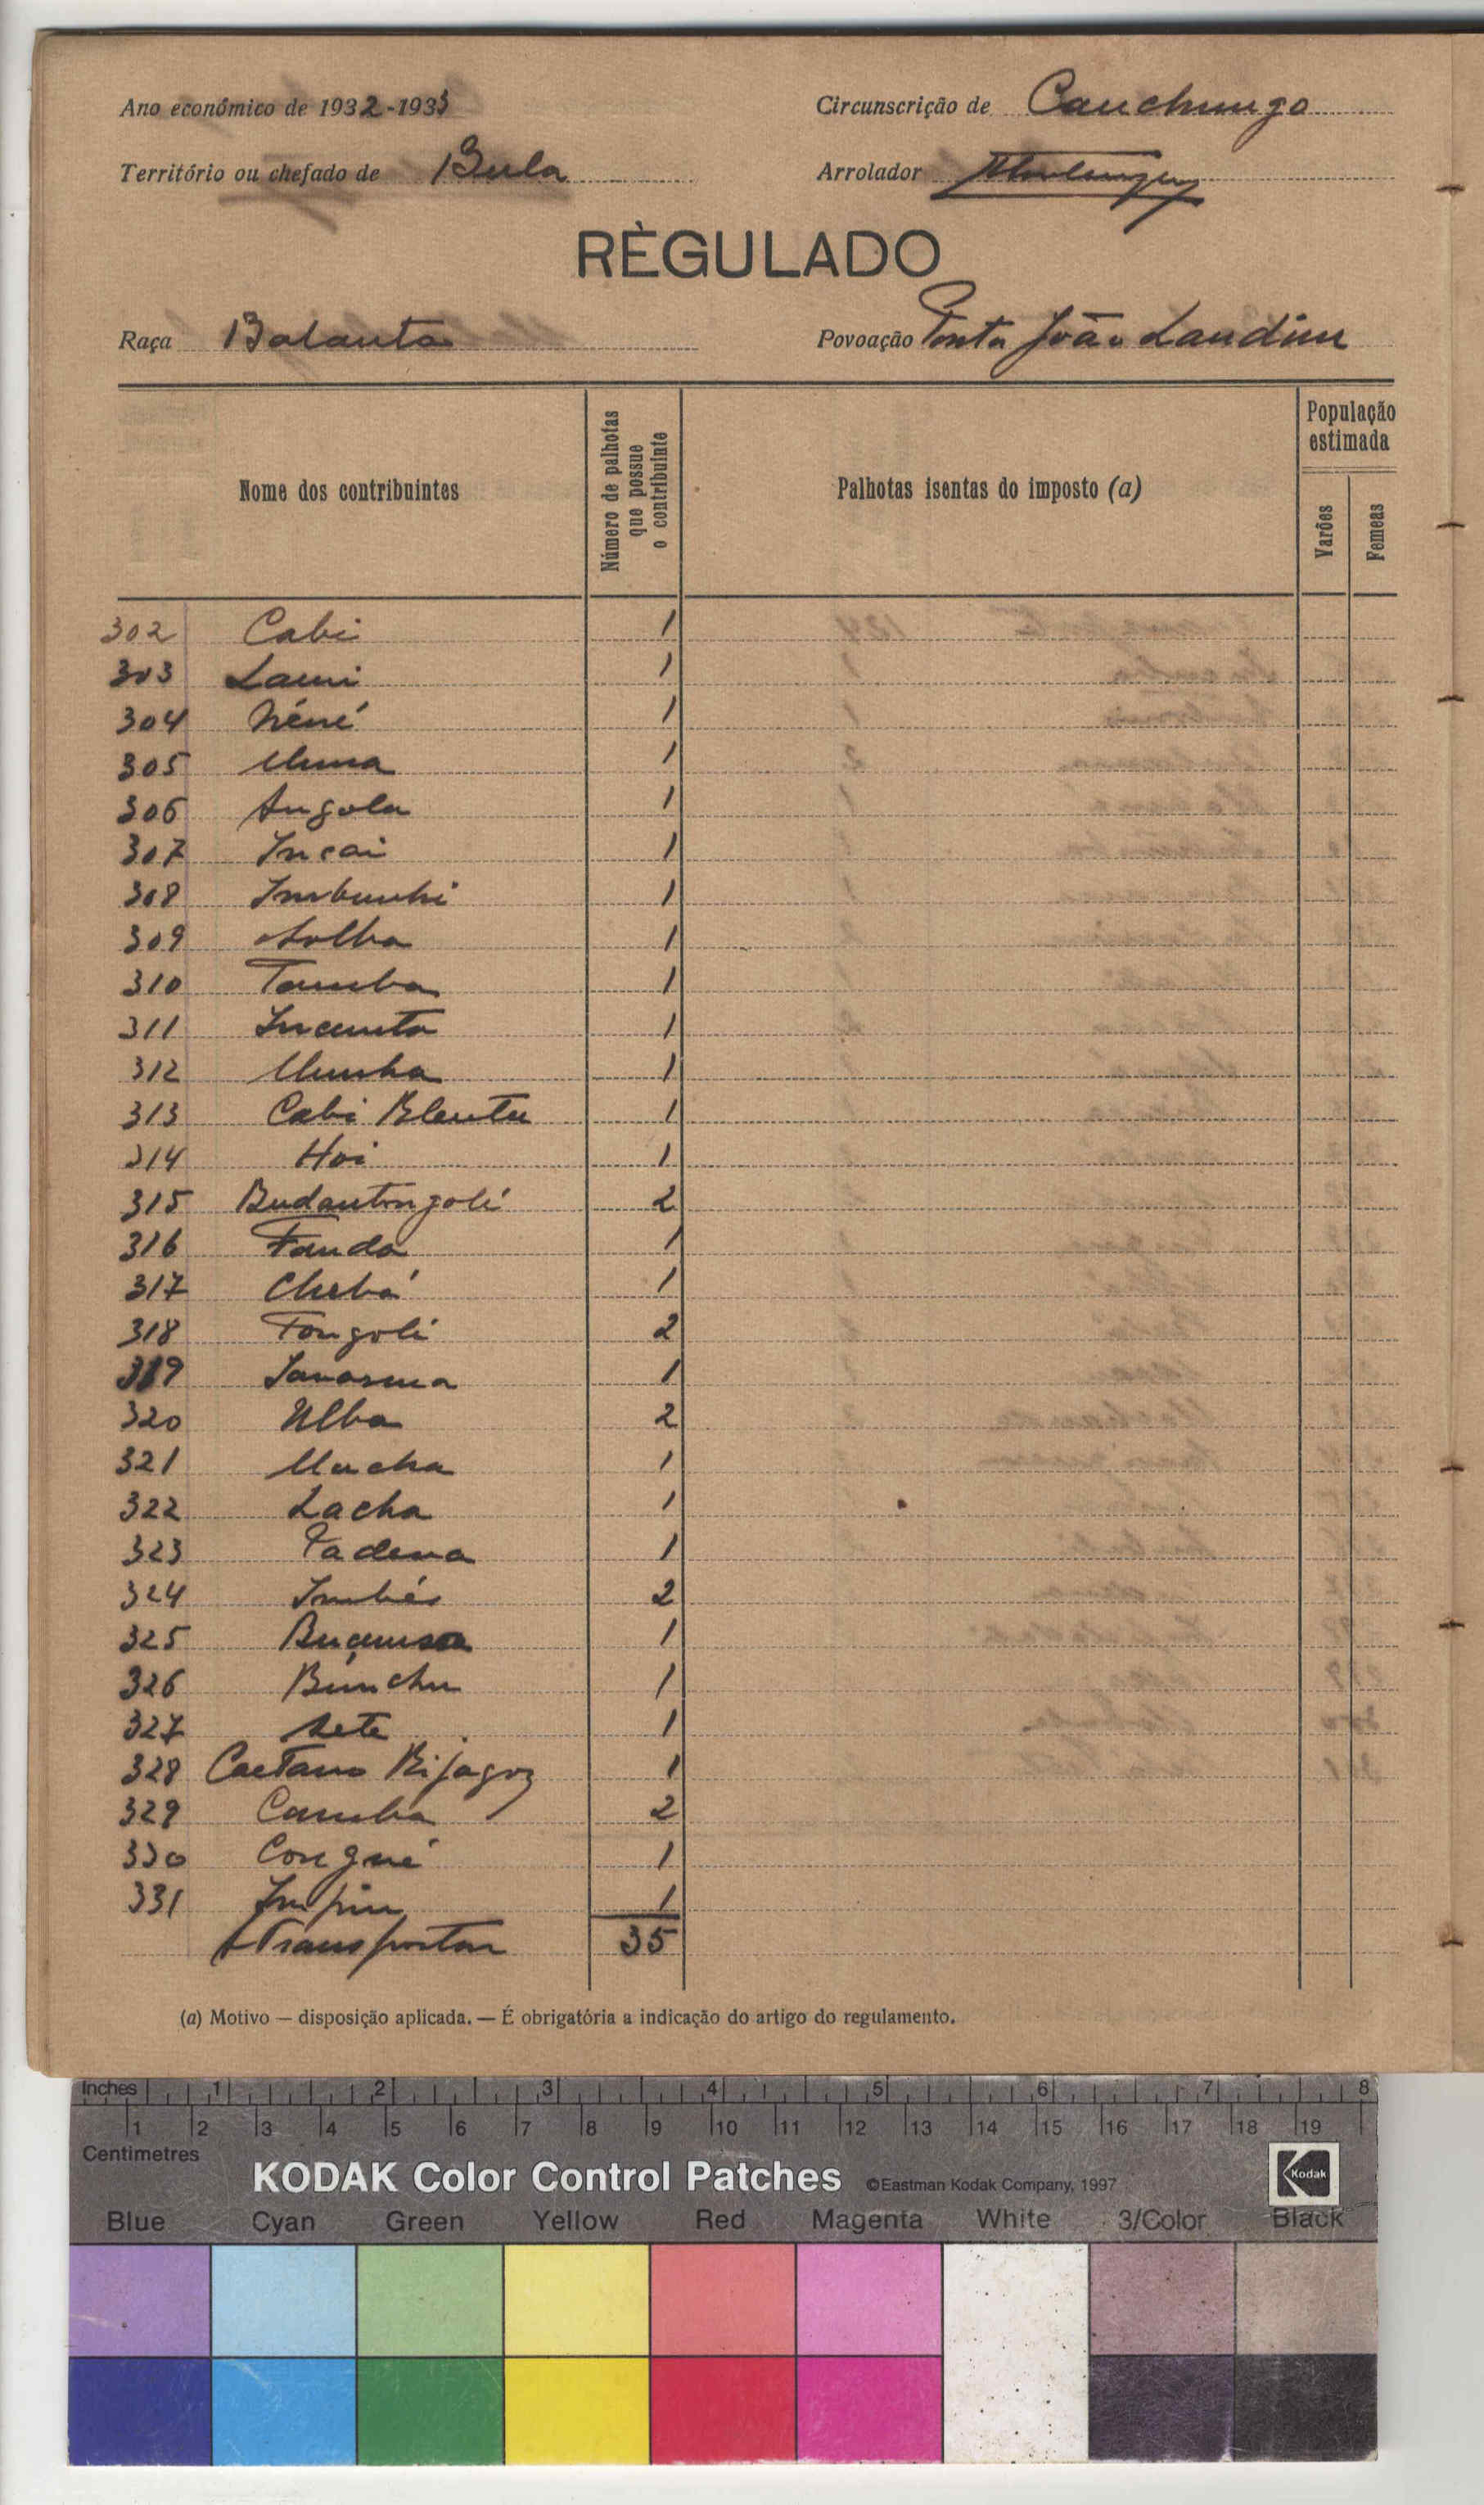 Ano económico de 1932-1933
Circunscrição de Cauchungo
Território ou chefado de Bula
Arrolador
RÈGULADO
Raça Balanta
Povoação Ponta João Landim
Nome dos contribuintes
Número de palhotas que possue o contribuinte
Palhotas isentas do imposto (a)
População estimada
Varões
Femeas
302 Cabi 1
303 Laui 1
304 Néné 1
305 1
306 Angola 1
307 Incai 1
308 Imbunhi 1
309 1
310 Tamba 1
311 Incunta 1
312 1
313 Cabi 1
314 Hoi 1
315 Budantongolé 2
316 Fanda 1
317 Chebá 1
318 Tongolé 2
319 1
320 Ulba 2
321 Mucha 1
322 Lacha 1
323 Padena 1
324 Imbés 2
325 1
326 Bunchu 1
327 Sete 1
328 Caetano Bijagoz 1
329 Camba 2
330 Congné 1
331 Impin 1
A Transportar 35
(a) Motivo — disposição aplicada. — É obrigatória a indicação do artigo do regulamento.
Inches 1 2 3 4 5 6 7 8
1 2 3 4 5 6 7 8 9 10 11 12 13 14 15 16 17 18 19
Centimetres
KODAK Color Control Patches ©Eastman Kodak Company, 1997 Kodak
Blue Cyan Green Yellow Red Magenta White 3/Color Black